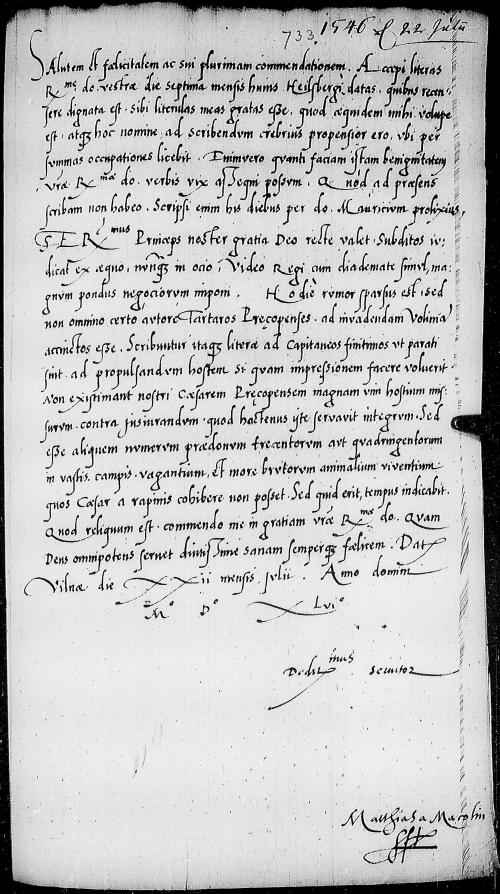 733. 1546 22 Julii
Salutem et fœlicitatem ac sui plurimam commendationem. Accepi literas
R.mę do. vestræ die septima mensis huius Heilsbergi datas, quibus recen-
sere dignata est, sibi literulas meas gratas esse, quod æquidem mihi volupe
est, atq₃ hoc nomine ad scribendum crebrius propensior ero, vbi per
summas occupationes licebit. Enimvero quanti faciam istam benignitatem
vræ R.mæ do. verbis vix assequi possum. Quod ad præsens
scribam non habeo. Scripsi enim his diebus per do. Mauricium prolixius.
S. E R.mus Princeps noster gratia Deo recte valet, subditos iu-
dicat ex æquo, nunq₃ in ocio, video Regi cum diademate simul, ma-
gnum pondus negociorum imponi. Hodie rumor sparsus est, sed
non omnino certo autore Tartaros Precopenses, ad invadendam Volinia
accinctos esse. Scribuntur itaq₃ literæ ad Capitaneos finitimos ut parati
sint, ad propulsandum hostem si quam impressionem facere voluerit
Non existimant nostri Cæsarem Precopensem magnam vim hostium mis-
surum, contra jusiurandum, quod hactenus iste servavit integrum. Sed
esse aliquem numerum prædonum trecentorum aut quadringentorum
in vastis campis vagantium, et more brutorum animalium viventium
quos Cæsar a rapinis cohibere non posset. Sed quid erit, tempus indicabit.
Quod reliquum est, commendo me in gratiam vræ R.mæ do. Quam
Deus omnipotens servet diutissime sanam semperq₃ fœlicem. Dat
Vilnæ die XXii mensis Julii. Anno domini
M.o D.o XLvi.o
Dedit.mus servitor
Matthias a